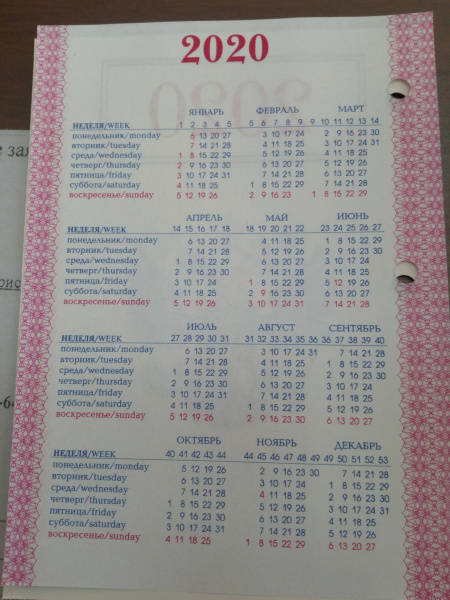 2020
ЯНВАРЬ ФЕВРАЛЬ МАРТ
НЕДЕЛЯ/WEEK 1 2 3 4 5 5 6 7 8 9 9 10 11 12 13 14
понедельник/monday 6 13 20 27 3 10 17 24 2 9 16 23 30
вторник/tuesday 7 14 21 28 4 11 18 25 3 10 17 24 31
среда/wednesday 1 8 15 22 29 5 12 19 26 4 11 18 25
четверг/thursday 2 9 16 23 30 6 13 20 27 5 12 19 26
пятница/friday 3 10 17 24 31 7 14 21 28 6 13 20 27
суббота/saturday 4 11 18 25 1 8 15 22 29 7 14 21 28
воскресенье/sunday 5 12 19 26 2 9 16 23 1 8 15 22 29
АПРЕЛЬ МАЙ ИЮНЬ
НЕДЕЛЯ/WEEK 14 15 16 17 18 18 19 20 21 22 23 24 25 26 27
понедельник/monday 6 13 20 27 4 11 18 25 1 8 15 22 29
вторник/tuesday 7 14 21 28 5 12 19 26 2 9 16 23 30
среда/wednesday 1 8 15 22 29 6 13 20 27 3 10 17 24
четверг/thursday 2 9 16 23 30 7 14 21 28 4 11 18 25
пятница/friday 3 10 17 24 1 8 15 22 29 5 12 19 26
суббота/saturday 4 11 18 25 2 9 16 23 30 6 13 20 27
воскресенье/sunday 5 12 19 26 3 10 17 24 31 7 14 21 28
ИЮЛЬ АВГУСТ СЕНТЯБРЬ
НЕДЕЛЯ/WEEK 27 28 29 30 31 31 32 33 34 35 36 36 37 38 39 40
понедельник/monday 6 13 20 27 3 10 17 24 31 7 14 21 28
вторник/tuesday 7 14 21 28 4 11 18 25 1 8 15 22 29
среда/wednesday 1 8 15 22 29 5 12 19 26 2 9 16 23 30
четверг/thursday 2 9 16 23 30 6 13 20 27 3 10 17 24
пятница/friday 3 10 17 24 31 7 14 21 28 4 11 18 25
суббота/saturday 4 11 18 25 1 8 15 22 29 5 12 19 26
воскресенье/sunday 5 12 19 26 2 9 16 23 30 6 13 20 27
ОКТЯБРЬ НОЯБРЬ ДЕКАБРЬ
НЕДЕЛЯ/WEEK 40 41 42 43 44 44 45 46 47 48 49 49 50 51 52 53
понедельник/monday 5 12 19 26 2 9 16 23 30 7 14 21 28
вторник/tuesday 6 13 20 27 3 10 17 24 1 8 15 22 29
среда/wednesday 7 14 21 28 4 11 18 25 2 9 16 23 30
четверг/thursday 1 8 15 22 29 5 12 19 26 3 10 17 24 31
пятница/friday 2 9 16 23 30 6 13 20 27 4 11 18 25
суббота/saturday 3 10 17 24 31 7 14 21 28 5 12 19 26
воскресенье/sunday 4 11 18 25 1 8 15 22 29 6 13 20 27